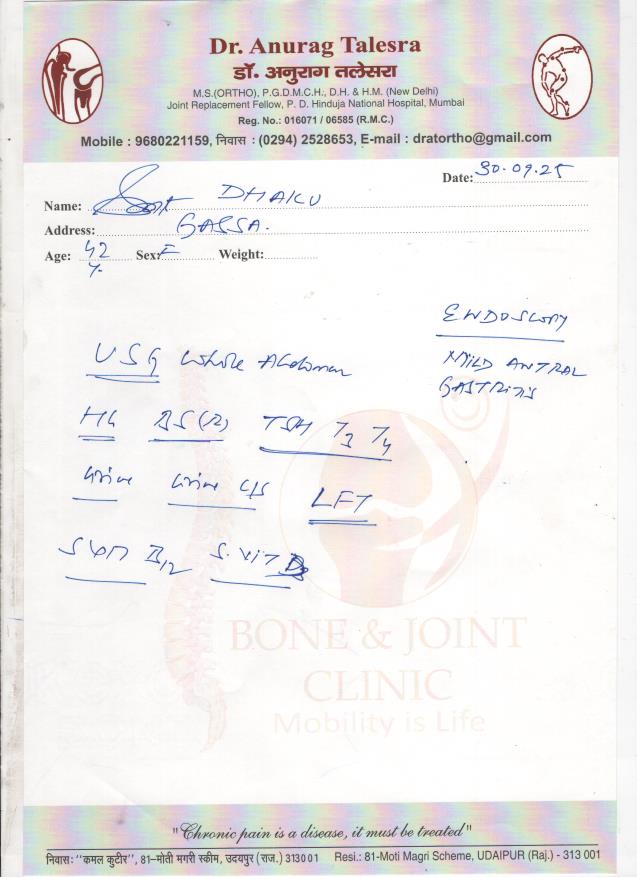 Dr. Anurag Talesra
डॉ. अनुराग तलेसरा
M.S.(ORTHO), P.G.D.M.C.H., D.H. & H.M. (New Delhi)
Joint Replacement Fellow, P. D. Hinduja National Hospital, Mumbai
Reg. No.: 016071 / 06585 (R.M.C.)
Mobile : 9680221159, निवास : (0294) 2528653, E-mail : dratortho@gmail.com
Date: 30.09.25
Name: DHAKU
Address:
Age: 42 Sex: F Weight:
y.
ENDOSCOPY
MILD ANTRAL
GASTRITIS
USG Whole Abdomen
BS (R) TSH T3 T4
Urine Urine C/S LFT
B12 S. VIT D3
BONE & JOINT
CLINIC
Mobility is Life
"Chronic pain is a disease, it must be treated"
निवास: "कमल कुटीर", 81-मोती मगरी स्कीम, उदयपुर (राज.) 313001 Resi.: 81-Moti Magri Scheme, UDAIPUR (Raj.) - 313 001